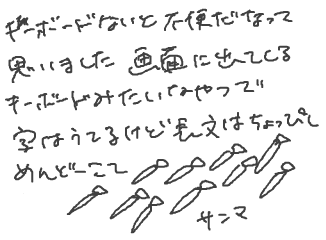 キーボードないと不便だなって
思いました 画面に出てくる
キーボードみたいなやつで
字はうてるけど長文はちょっぴし
めんどーこて
サンマ